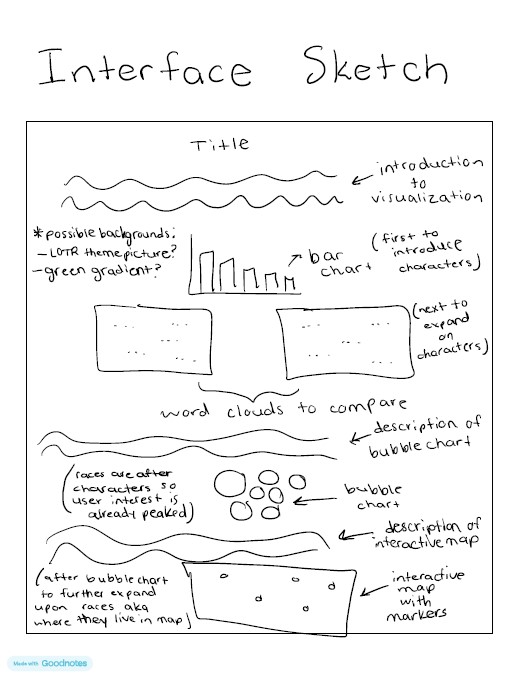 Interface Sketch
Title
introduction
to
visualization
* possible backgrounds:
- LOTR theme picture?
- green gradient?
bar
chart
(first to
introduce
characters)
(next to
expand
on
characters)
word clouds to compare
description of
bubble chart
(races are after
characters so
user interest is
already peaked)
bubble
chart
description of
interactive map
(after bubble chart
to further expand
upon races aka
where they live in map)
interactive
map
with
markers
Made with Goodnotes